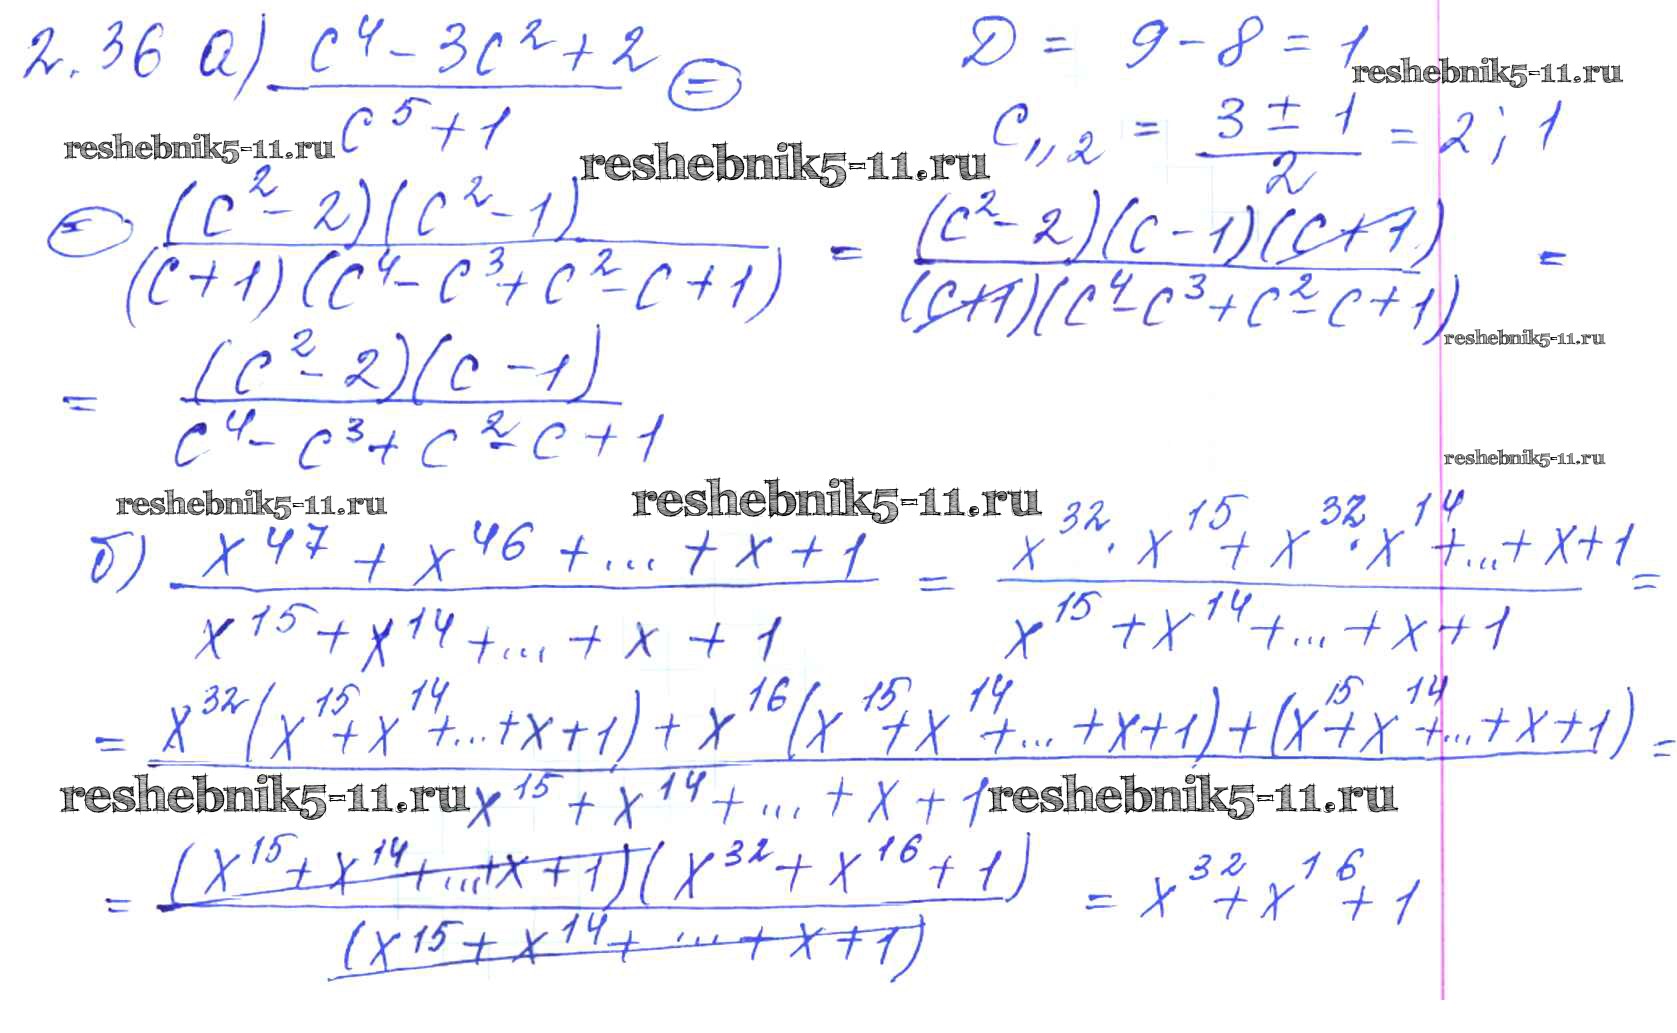 2.36 а) (c⁴ - 3c² + 2)/(c⁵ + 1) ⊜
D = 9 - 8 = 1
reshebnik5-11.ru
c₁,,₂ = (3 ± 1)/2 = 2; 1
reshebnik5-11.ru
reshebnik5-11.ru
⊜ ((c² - 2)(c² - 1))/((c + 1)(c⁴ - c³ + c² - c + 1)) = ((c² - 2)(c - 1)(c + 1))/((c+1)(c⁴ - c³ + c² - c + 1)) =
reshebnik5-11.ru
= ((c² - 2)(c - 1))/(c⁴ - c³ + c² - c + 1)
reshebnik5-11.ru
reshebnik5-11.ru
reshebnik5-11.ru
б) (x⁴⁷ + x⁴⁶ + ... + x + 1)/(x¹⁵ + x¹⁴ + ... + x + 1) = (x³² · x¹⁵ + x³² · x¹⁴ + ... + x + 1)/(x¹⁵ + x¹⁴ + ... + x + 1) =
= (x³²(x¹⁵ + x¹⁴ + ... + x + 1) + x¹⁶(x¹⁵ + x¹⁴ + ... + x + 1) + (x¹⁵ + x¹⁴ + ... + x + 1))/(x¹⁵ + x¹⁴ + ... + x + 1) =
reshebnik5-11.ru
reshebnik5-11.ru
= ((x¹⁵ + x¹⁴ + ... + x + 1)(x³² + x¹⁶ + 1))/((x¹⁵ + x¹⁴ + ... + x + 1)) = x³² + x¹⁶ + 1